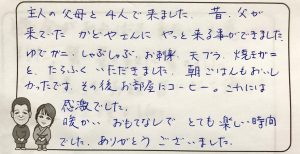 主人の父母と4人で来ました。昔、父が
来ていた かどやさんに やっと来る事ができました。
ゆでガニ・しゃぶしゃぶ、お刺身、天プラ、焼きガニ
と、たらふく いただきました。朝ごはんもおいし
かったです。その後お部屋にコーヒー。これには
感激でした。
暖かい おもてなしで とても 楽しい時間
でした。ありがとう ございました。